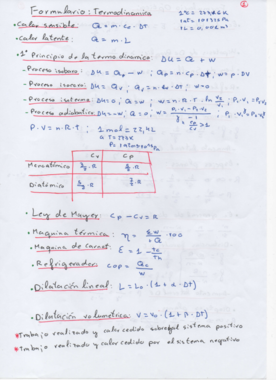 Formulario: Termodinamica
• Calor sensible: Q = m · Ce · ΔT
• Calor latente: Q = m · L
• 1º Principio de la termodinamica: ΔU = Q + W
- Proceso isobaro: ΔU = Qp - W ; Qp = n · Cp · ΔT ; W = P · ΔV
- Proceso isocoro: ΔU = Qv ; Qv = n · Cv · ΔT ; W = 0
- Proceso isotermo: ΔU = 0 ; Q = W ; W = n · R · T · Ln
- Proceso adiabatico: ΔU = -W ; Q = 0 ;
P · V = n · R · T ; 1 mol = 22,4 L
Cv Cp
Monoatómico 3/2 · R 5/2 · R
Diatómico 5/2 · R 7/2 · R
• Ley de Mayer: Cp - Cv = R
• Maquina térmica: · 100
• Maquina de Carnot: E = 1 -
• Refrigerador: COP =
• Dilatación lineal: L = L0 · (1 + α · ΔT)
• Dilatación volumetrica: V = V0 · (1 + β · ΔT)
*Trabajo realizado y calor cedido sobre el sistema positivo
*Trabajo realizado y calor cedido por el sistema negativo